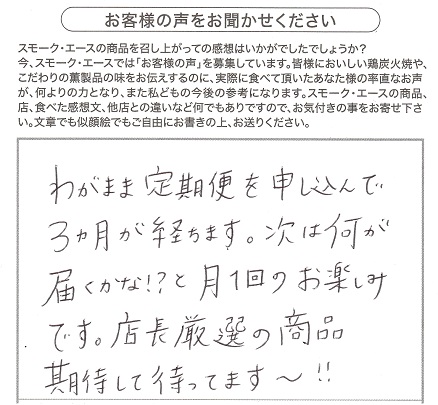 お客様の声をお聞かせください
スモーク・エースの商品を召し上がっての感想はいかがでしたでしょうか?
今、スモーク・エースでは「お客様の声」を募集しています。皆様においしい鶏炭火焼や、
こだわりの薫製品の味をお伝えするのに、実際に食べて頂いたあなた様の率直なお声
が、何よりの力となり、また私どもの今後の参考になります。スモーク・エースの商品、
店、食べた感想文、他店との違いなど何でもありですので、お気付きの事をお寄せ下さ
い。文章でも似顔絵でもご自由にお書きの上、お送りください。
わがまま定期便を申し込んで
3ヵ月が経ちます。次は何が
届くかな!?と月1回のお楽しみ
です。店長厳選の商品
期待して待ってます〜!!